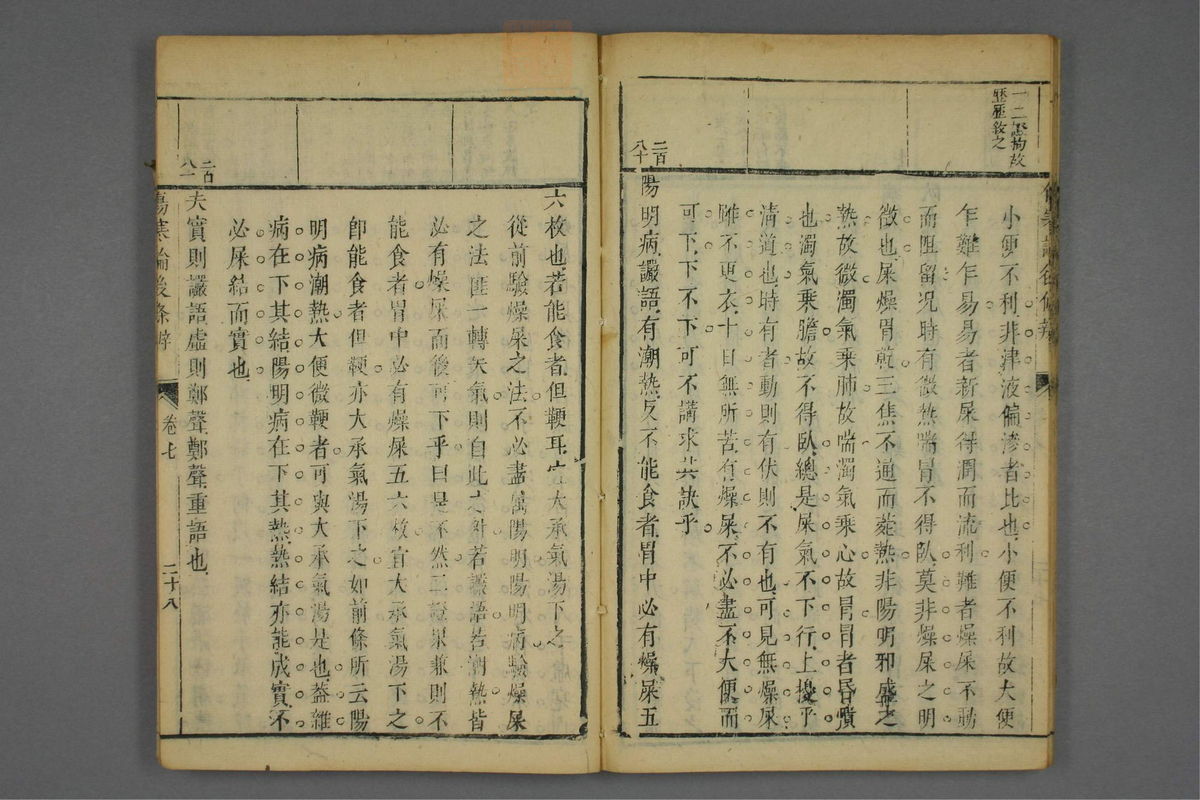 一二懸拘故
歷歷敘之
小便不利非津液偏滲者比也小便不利故大便
乍難乍易易者新屎得潤而流利難者燥屎不動
而阻留況時有微熱喘冒不得臥莫非燥屎之明
徵也屎燥胃乾三焦不通而菀熱非陽明邪盛之
熱故微濁氣乘肺故喘濁氣乘心故冒冒者昏憒
也濁氣乘膽故不得臥總是屎氣不下行上擾乎
清道也時有者動則有伏則不有也可見無燥屎
雖不更衣十日無所苦有燥屎不必盡不大便而
可下下不下可不講求其訣乎
二百八十
陽明病讝語有潮熱反不能食者胃中必有燥屎五
六枚也若能食者但鞕耳宜大承氣湯下之
從前驗燥屎之法不必盡屬陽明陽明病驗燥屎
之法匪一轉矢氣則自此之外若讝語若潮熱皆
必有燥屎而後可下乎曰是不然二證果兼則不
能食者胃中必有燥屎五六枚宜大承氣湯下之
即能食者但鞕亦大承氣湯下之如前條所云陽
明病潮熱大便微鞕者可與大承氣湯是也蓋雜
病在下其結陽明病在下其熱熱結亦能成實不
必屎結而實也
二百八一
夫實則讝語虛則鄭聲鄭聲重語也
傷寒論後條辨
卷七
二十八